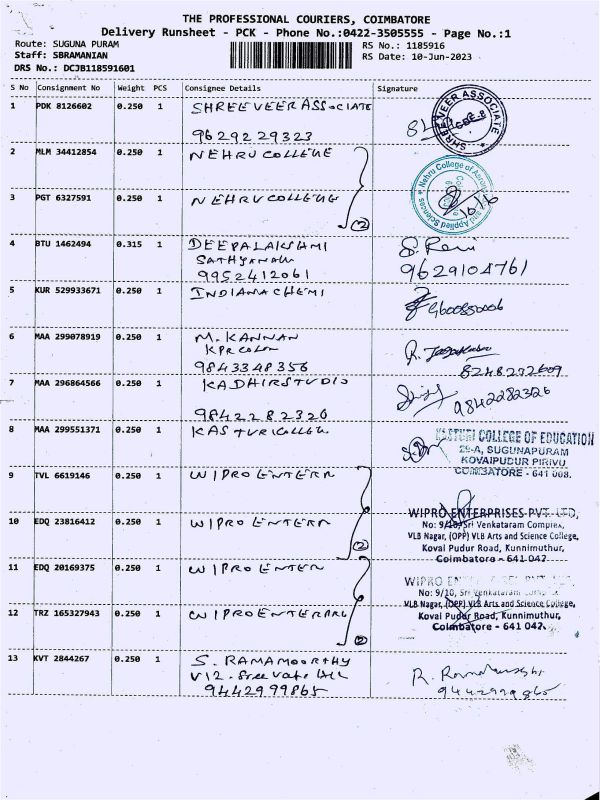 THE PROFESSIONAL COURIERS, COIMBATORE
Delivery Runsheet - PCK - Phone No.:0422-3505555 - Page No.:1
Route: SUGUNA PURAM
Staff: SBRAMANIAN
DRS No.: DCJB118591601
RS No.: 1185916
RS Date: 10-Jun-2023
S No Consignment No Weight PCS Consignee Details Signature
1 PDK 8126602 0.250 1 SHREEVEER ASSOCIATE
9629229323
SHREE VEER ASSOCIATE
2 MLM 34412854 0.250 1 NEHRU COLLEGE
3 PGT 6327591 0.250 1 NEHRU COLLEGE
(2)
Nehru College of
and Applied Sciences
10/6
4 BTU 1462494 0.315 1 DEEPALAKSHMI
SATHYANAN
9952412061
9629104761
5 KUR 529933671 0.250 1 INDIANA CHEMI
9600850006
6 MAA 299078919 0.250 1 M. KANNAN
KPR COLON
9843348356
8248272609
7 MAA 296864566 0.250 1 KADHIR STUDIO
9842282320
9842282320
8 MAA 299551371 0.250 1 KASTURI COLLEGE
KASTURI COLLEGE OF EDUCATION
29-A, SUGUNAPURAM
KOVAIPUDUR PIRIVU
COIMBATORE - 641 008.
9 TVL 6619146 0.250 1 WIPRO ENTERR
10 EDQ 23816412 0.250 1 WIPRO ENTERR
(2)
WIPRO ENTERPRISES PVT. LTD,
No: 9/10, Sri Venkataram Complex,
VLB Nagar, (OPP) VLB Arts and Science College,
Koval Pudur Road, Kunnimuthur,
Coimbatore - 641 042
11 EDQ 20169375 0.250 1 WIPRO ENTER
12 TRZ 165327943 0.250 1 WIPRO ENTERPR
(2)
WIPRO
No: 9/10, Sri Venkataram Complex
VLB Nagar, (OPP) VLB Arts and Science College,
Koval Pudur Road, Kunnimuthur,
Coimbatore - 641 042.
13 KVT 2844267 0.250 1 S. RAMAMOORTHY
V12. Sree Vats
9442999865
9442999865